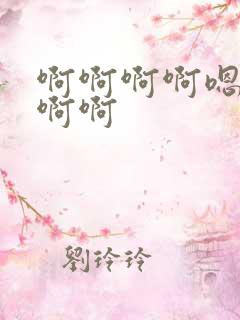 啊啊啊啊嗯
啊啊
劉玲玲